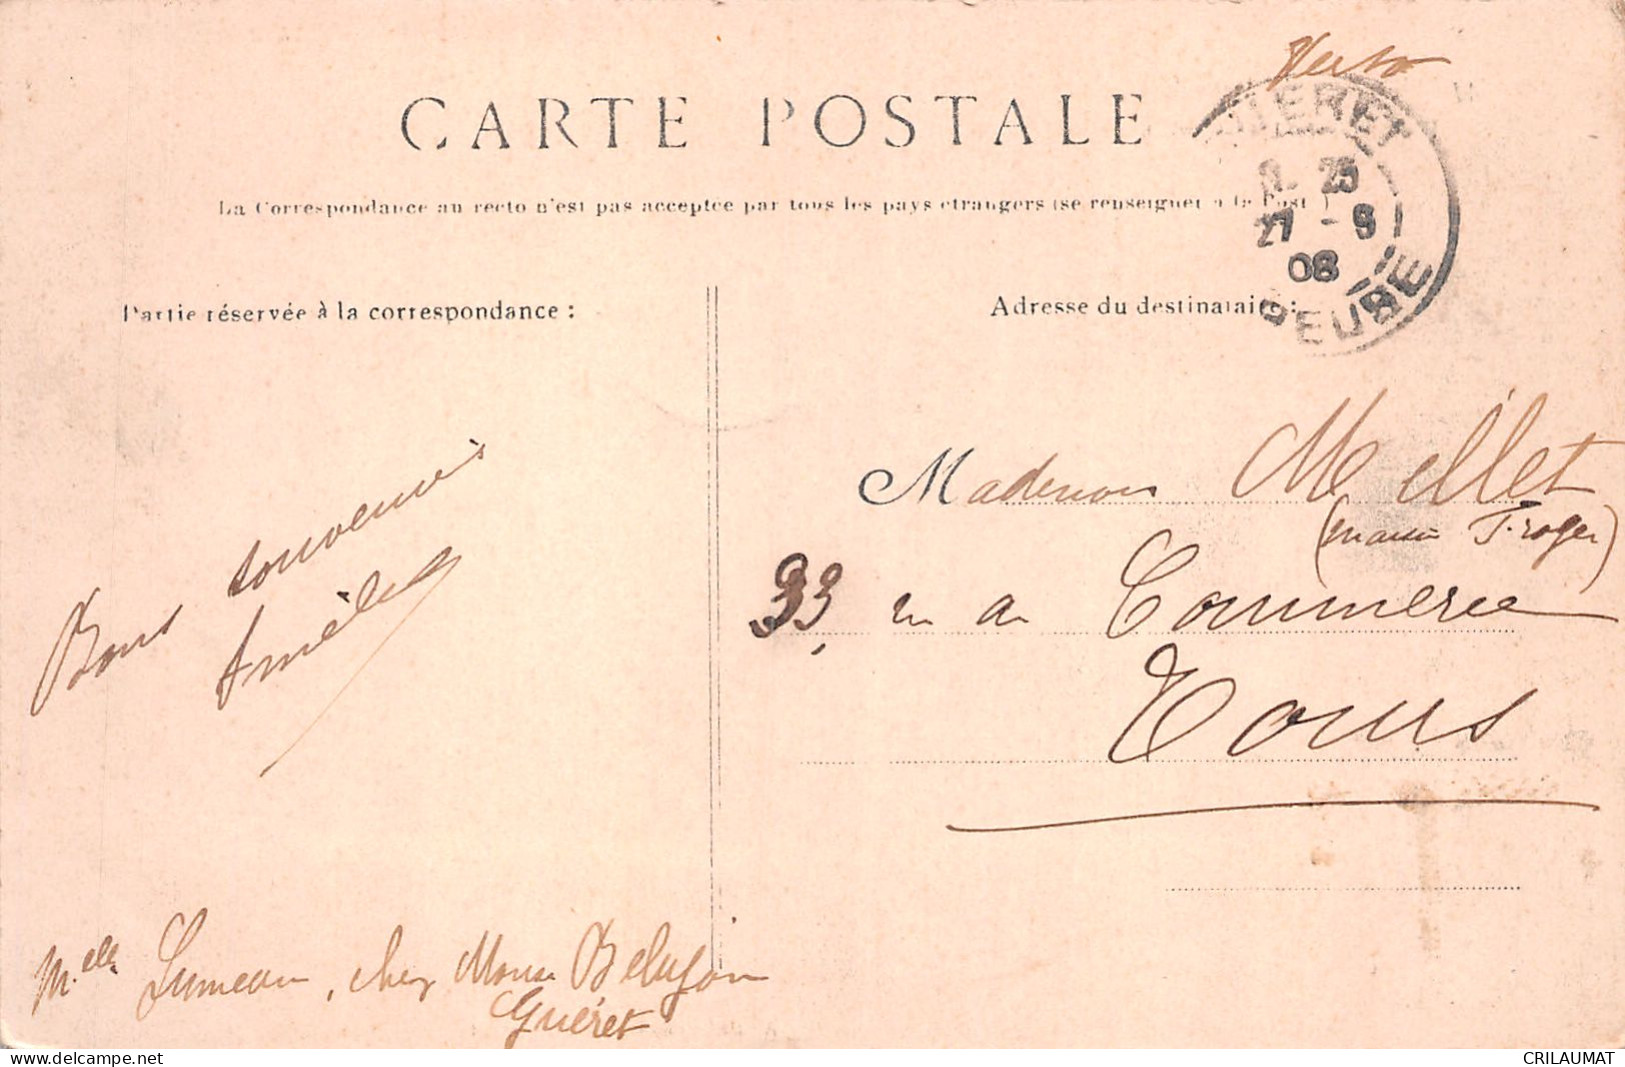 Verso
CARTE POSTALE
La Correspondance au recto n'est pas acceptée par tous les pays étrangers (se renseigner à la Post )
GUERET
25
27 - 9
08
CREUSE
Partie réservée à la correspondance :
Adresse du destinataire :
Bons souvenirs
Amélie
Mademois Mellet
(maison Froger)
33, rue du Commerce
Tours
Melle Lumeau, chez Mme Belujon
Guéret
delcampe.net
CRILAUMAT